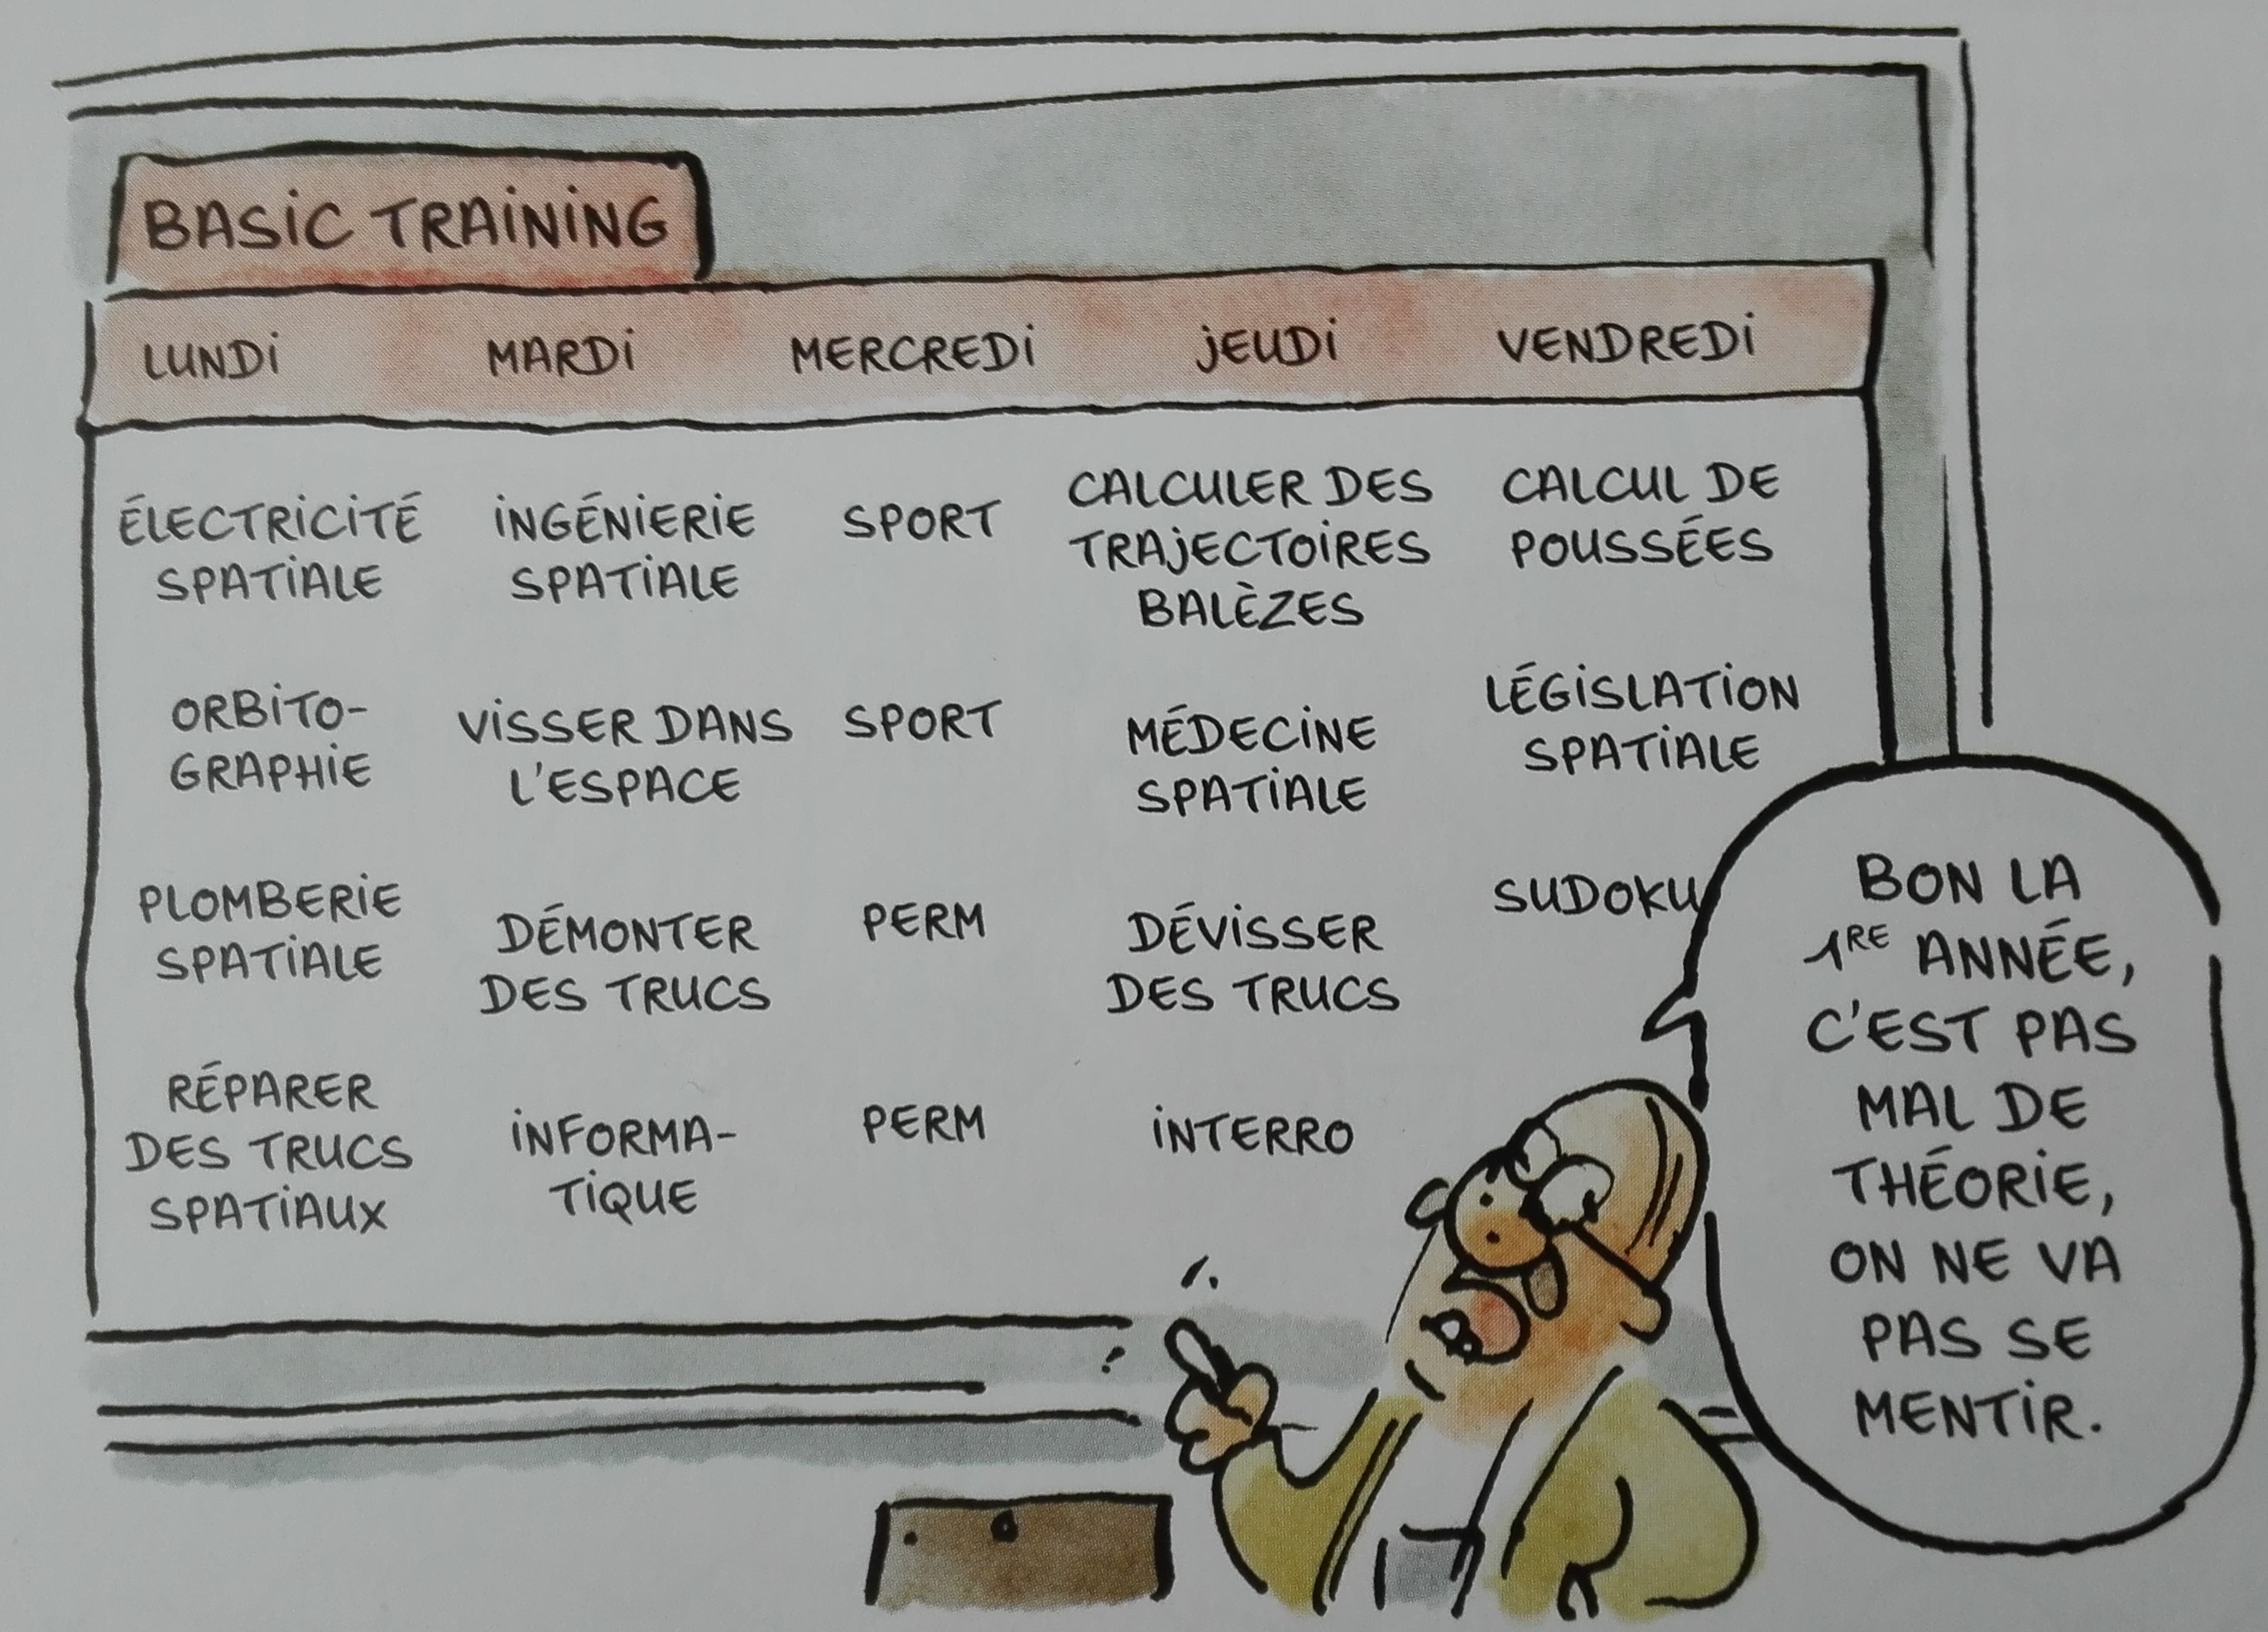 BASIC TRAINING
LUNDI MARDI MERCREDI JEUDI VENDREDI
ÉLECTRICITÉ
SPATIALE
INGÉNIERIE
SPATIALE
SPORT
CALCULER DES
TRAJECTOIRES
BALÈZES
CALCUL DE
POUSSÉES
ORBITO-
GRAPHIE
VISSER DANS
L'ESPACE
SPORT
MÉDECINE
SPATIALE
LÉGISLATION
SPATIALE
PLOMBERIE
SPATIALE
DÉMONTER
DES TRUCS
PERM
DÉVISSER
DES TRUCS
SUDOKU
RÉPARER
DES TRUCS
SPATIAUX
INFORMA-
TIQUE
PERM
INTERRO
BON LA
1RE ANNÉE,
C'EST PAS
MAL DE
THÉORIE,
ON NE VA
PAS SE
MENTIR.